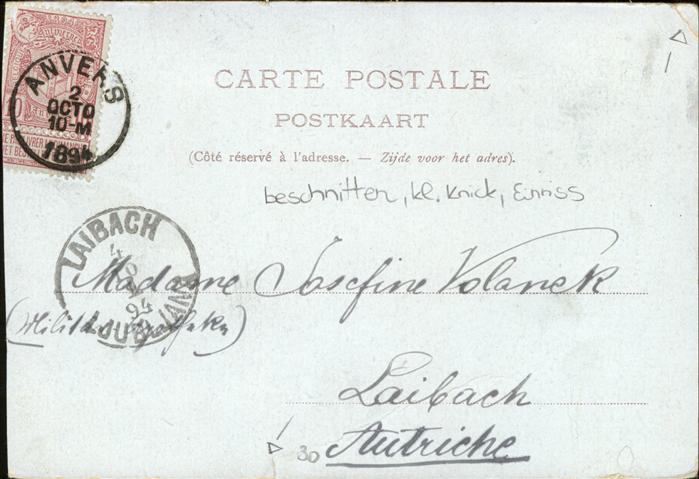 ANVERS
2
OCTO
10-M
1894
CARTE POSTALE
POSTKAART
(Côté réservé à l'adresse. — Zijde voor het adres).
beschnitten, kl. Knick, Einriss
LAIBACH
4
94
LJUBLJANA
Madame Josefine Volanek
Laibach
30 Autriche